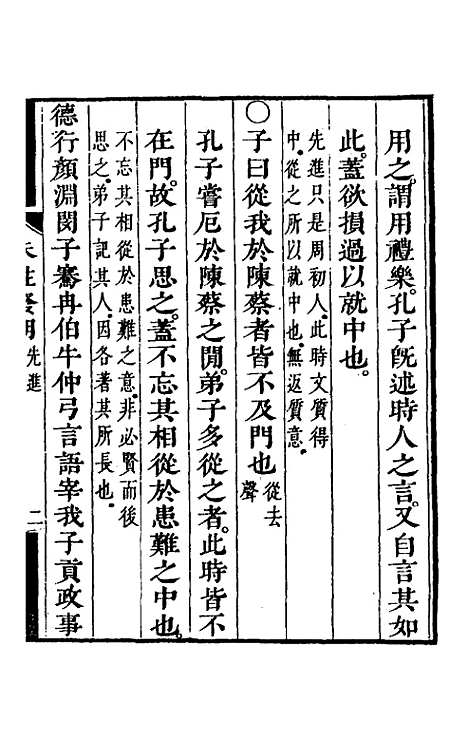 用之。謂用禮樂。孔子旣述時人之言。又自言其如
此。蓋欲損過以就中也。
先進只是周初人。此時文質得
中。從之所以就中。無返質意。
○子曰從我於陳蔡者皆不及門也從去聲
孔子嘗厄於陳蔡之閒。弟子多從之者。此時皆不
在門。故孔子思之。蓋不忘其相從於患難之中也。
不忘其相從於患難之意。非必賢而後
思之。弟子記其人。因各著其所長也。
德行顏淵閔子騫冉伯牛仲弓言語宰我子貢政事
先進
二